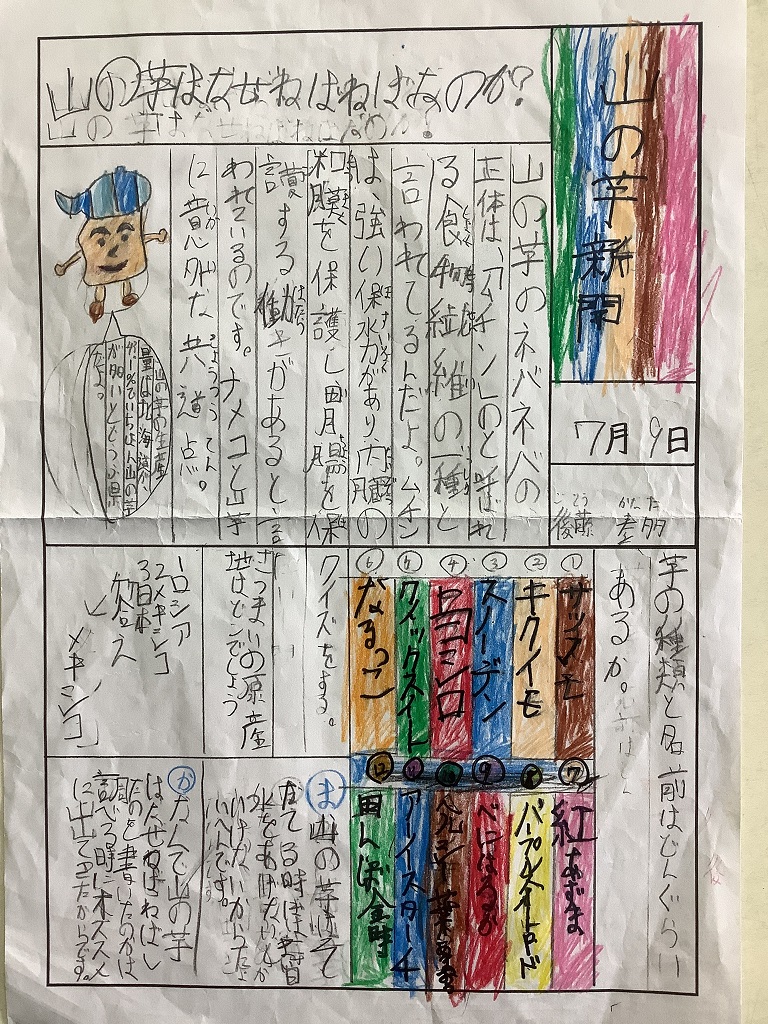 山の芋新聞
7月9日
ごとう かんた
後藤
山の芋はなぜねばねばなのか?
山の芋のネバネバの
正体は、「ムチン」のと呼ばれ
る食物繊維の一種と
言われてるんだよ。ムチン
は強い保水力があり、内臓の
粘膜を保護し
する働きがあると言
われているのです。ナメコと山芋
に意外な共通点。
山の芋の生産
量は北海道が、
が多いんだよ。
芋の種類と名前はどんぐらい
あるか。
①サツマイモ
②キクイモ
③スノーデン
④
⑤クイックスイート
⑥なるっこ
⑦紅あずま
⑧パープルスイートロード
⑨べにはるか
⑩
⑪アーリースター4
⑫金時
クイズをする。
さつまいもの原産
地はどこでしょう
1ロシア
2メキシコ
3日本
答え
メキシコ
ま 山の芋は
育てる時は毎日
水をあげないと
いけないから
たいへんです。
か なんで山の芋
はなぜねばねばし
たのを書いたのかは
調べる時にオススメ
に出てきたからです。